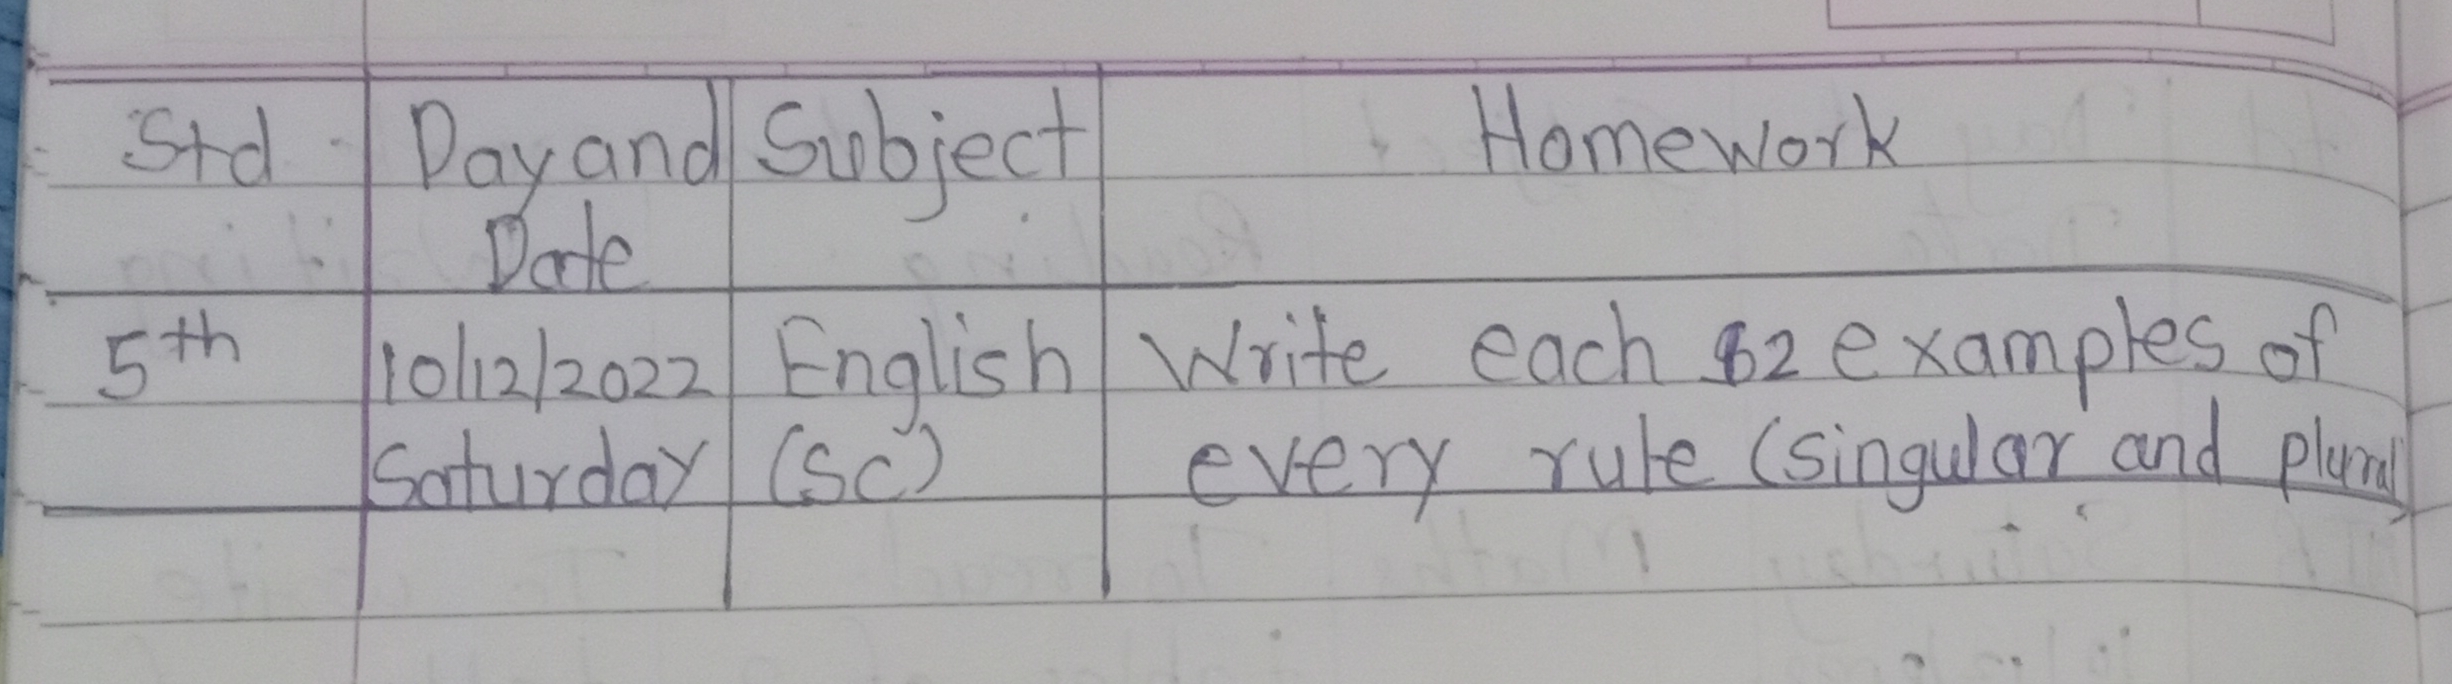 Std Day and Subject Homework
Date
5th 10/12/2022 English Write each 2 examples of
Saturday (SC) every rule (singular and plural